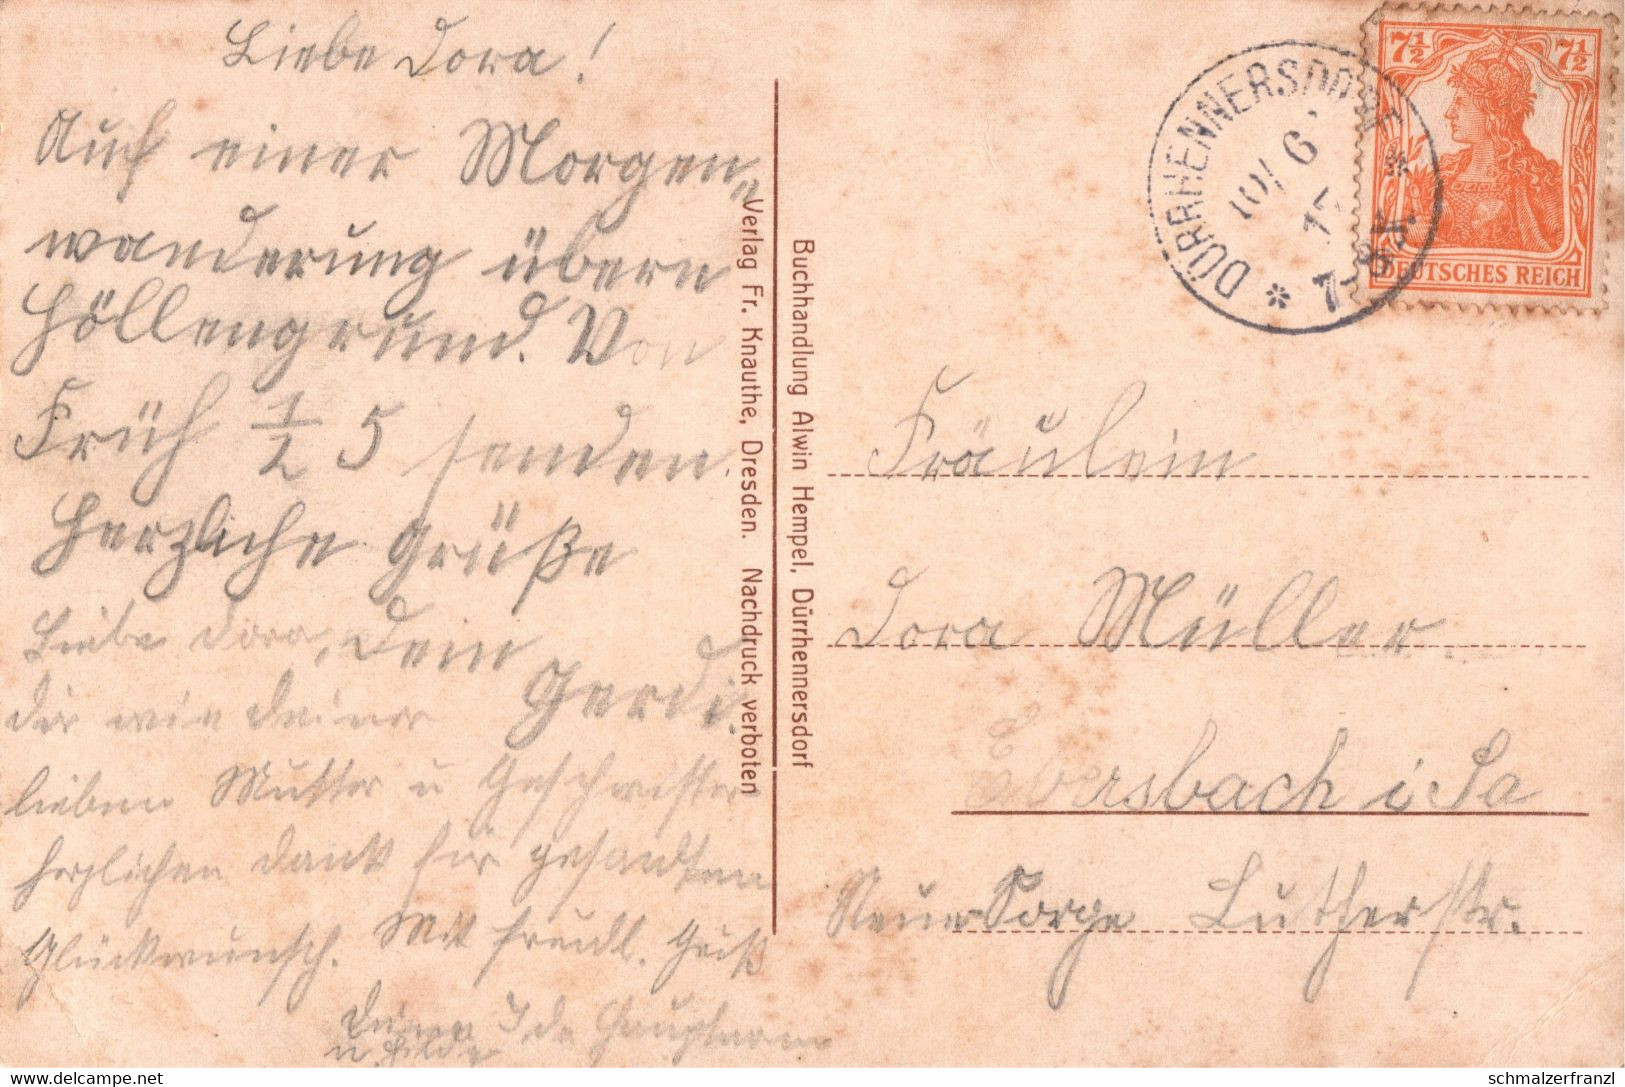 Liebe Dora!
Auf einer Morgen-
wanderung übern
Höllengrund. Von
Früh 1/2 5 senden
herzliche Grüße
Dein
Gerdi.
Liebe Dora,
dir wie deiner
lieben Mutter u Geschwister
herzlichen Dank für gesandten
Glückwunsch. Mit freudl. Gruß
Ida Hauptmann
u. Hilde
Verlag Fr. Knauthe, Dresden. Nachdruck verboten
Buchhandlung Alwin Hempel, Dürrhennersdorf
DÜRRHENNERSDORF
6
17
7-8V.
7½ 7½
DEUTSCHES REICH
Fräulein
Dora Müller
Ebersbach i Sa
Neue Sorge Lutherstr.
© schmalzerfranzl